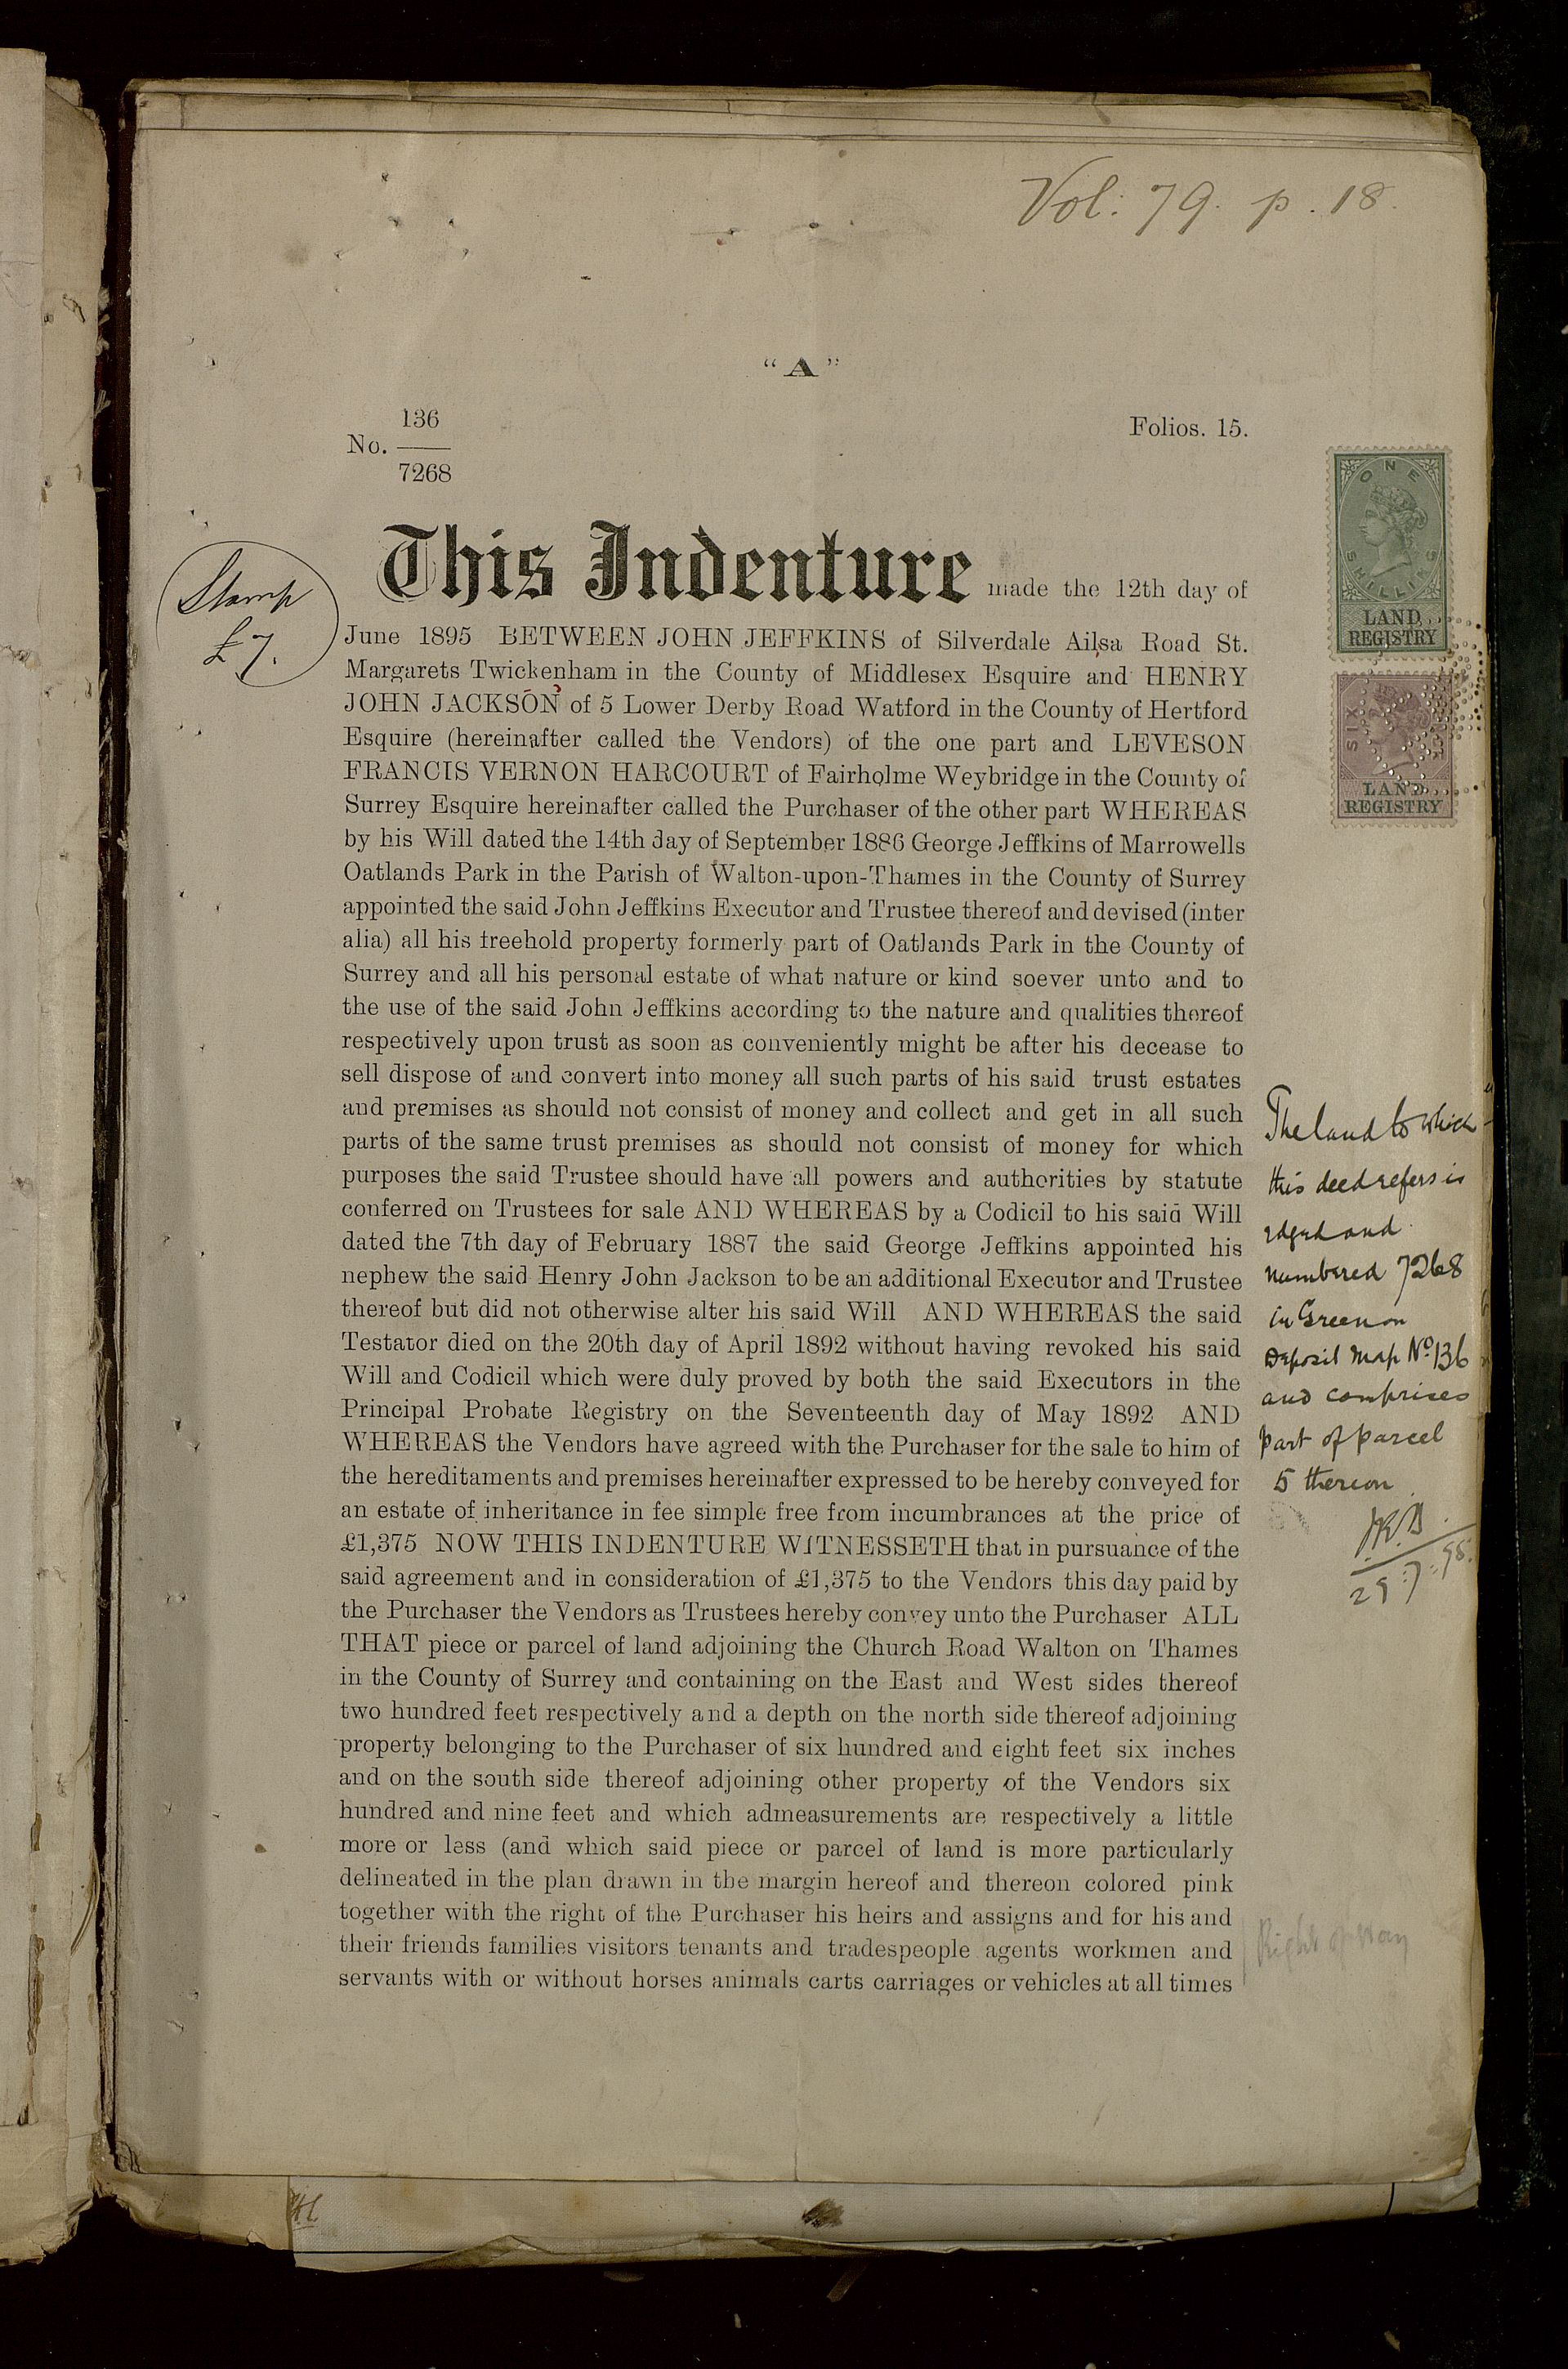 Vol: 79. p. 18.
“A”
136
No.
7268
Folios. 15.
Stamp
£7.
This Indenture made the 12th day of
June 1895 BETWEEN JOHN JEFFKINS of Silverdale Ailsa Road St.
Margarets Twickenham in the County of Middlesex Esquire and HENRY
JOHN JACKSON of 5 Lower Derby Road Watford in the County of Hertford
Esquire (hereinafter called the Vendors) of the one part and LEVESON
FRANCIS VERNON HARCOURT of Fairholme Weybridge in the County of
Surrey Esquire hereinafter called the Purchaser of the other part WHEREAS
by his Will dated the 14th day of September 1886 George Jeffkins of Marrowells
Oatlands Park in the Parish of Walton-upon-Thames in the County of Surrey
appointed the said John Jeffkins Executor and Trustee thereof and devised (inter
alia) all his freehold property formerly part of Oatlands Park in the County of
Surrey and all his personal estate of what nature or kind soever unto and to
the use of the said John Jeffkins according to the nature and qualities thereof
respectively upon trust as soon as conveniently might be after his decease to
sell dispose of and convert into money all such parts of his said trust estates
and premises as should not consist of money and collect and get in all such
parts of the same trust premises as should not consist of money for which
purposes the said Trustee should have all powers and authorities by statute
conferred on Trustees for sale AND WHEREAS by a Codicil to his said Will
dated the 7th day of February 1887 the said George Jeffkins appointed his
nephew the said Henry John Jackson to be an additional Executor and Trustee
thereof but did not otherwise alter his said Will AND WHEREAS the said
Testator died on the 20th day of April 1892 without having revoked his said
Will and Codicil which were duly proved by both the said Executors in the
Principal Probate Registry on the Seventeenth day of May 1892 AND
WHEREAS the Vendors have agreed with the Purchaser for the sale to him of
the hereditaments and premises hereinafter expressed to be hereby conveyed for
an estate of inheritance in fee simple free from incumbrances at the price of
£1,375 NOW THIS INDENTURE WITNESSETH that in pursuance of the
said agreement and in consideration of £1,375 to the Vendors this day paid by
the Purchaser the Vendors as Trustees hereby convey unto the Purchaser ALL
THAT piece or parcel of land adjoining the Church Road Walton on Thames
in the County of Surrey and containing on the East and West sides thereof
two hundred feet respectively and a depth on the north side thereof adjoining
property belonging to the Purchaser of six hundred and eight feet six inches
and on the south side thereof adjoining other property of the Vendors six
hundred and nine feet and which admeasurements are respectively a little
more or less (and which said piece or parcel of land is more particularly
delineated in the plan drawn in the margin hereof and thereon colored pink
together with the right of the Purchaser his heirs and assigns and for his and
their friends families visitors tenants and tradespeople agents workmen and
servants with or without horses animals carts carriages or vehicles at all times
ONE
SHILLING
LAND
REGISTRY
SIX
LAND
REGISTRY
The land to which
this deed refers is
edged and
numbered 7268
in Green on
Deposit Map No 136
and comprises
part of parcel
5 thereon
Right of way